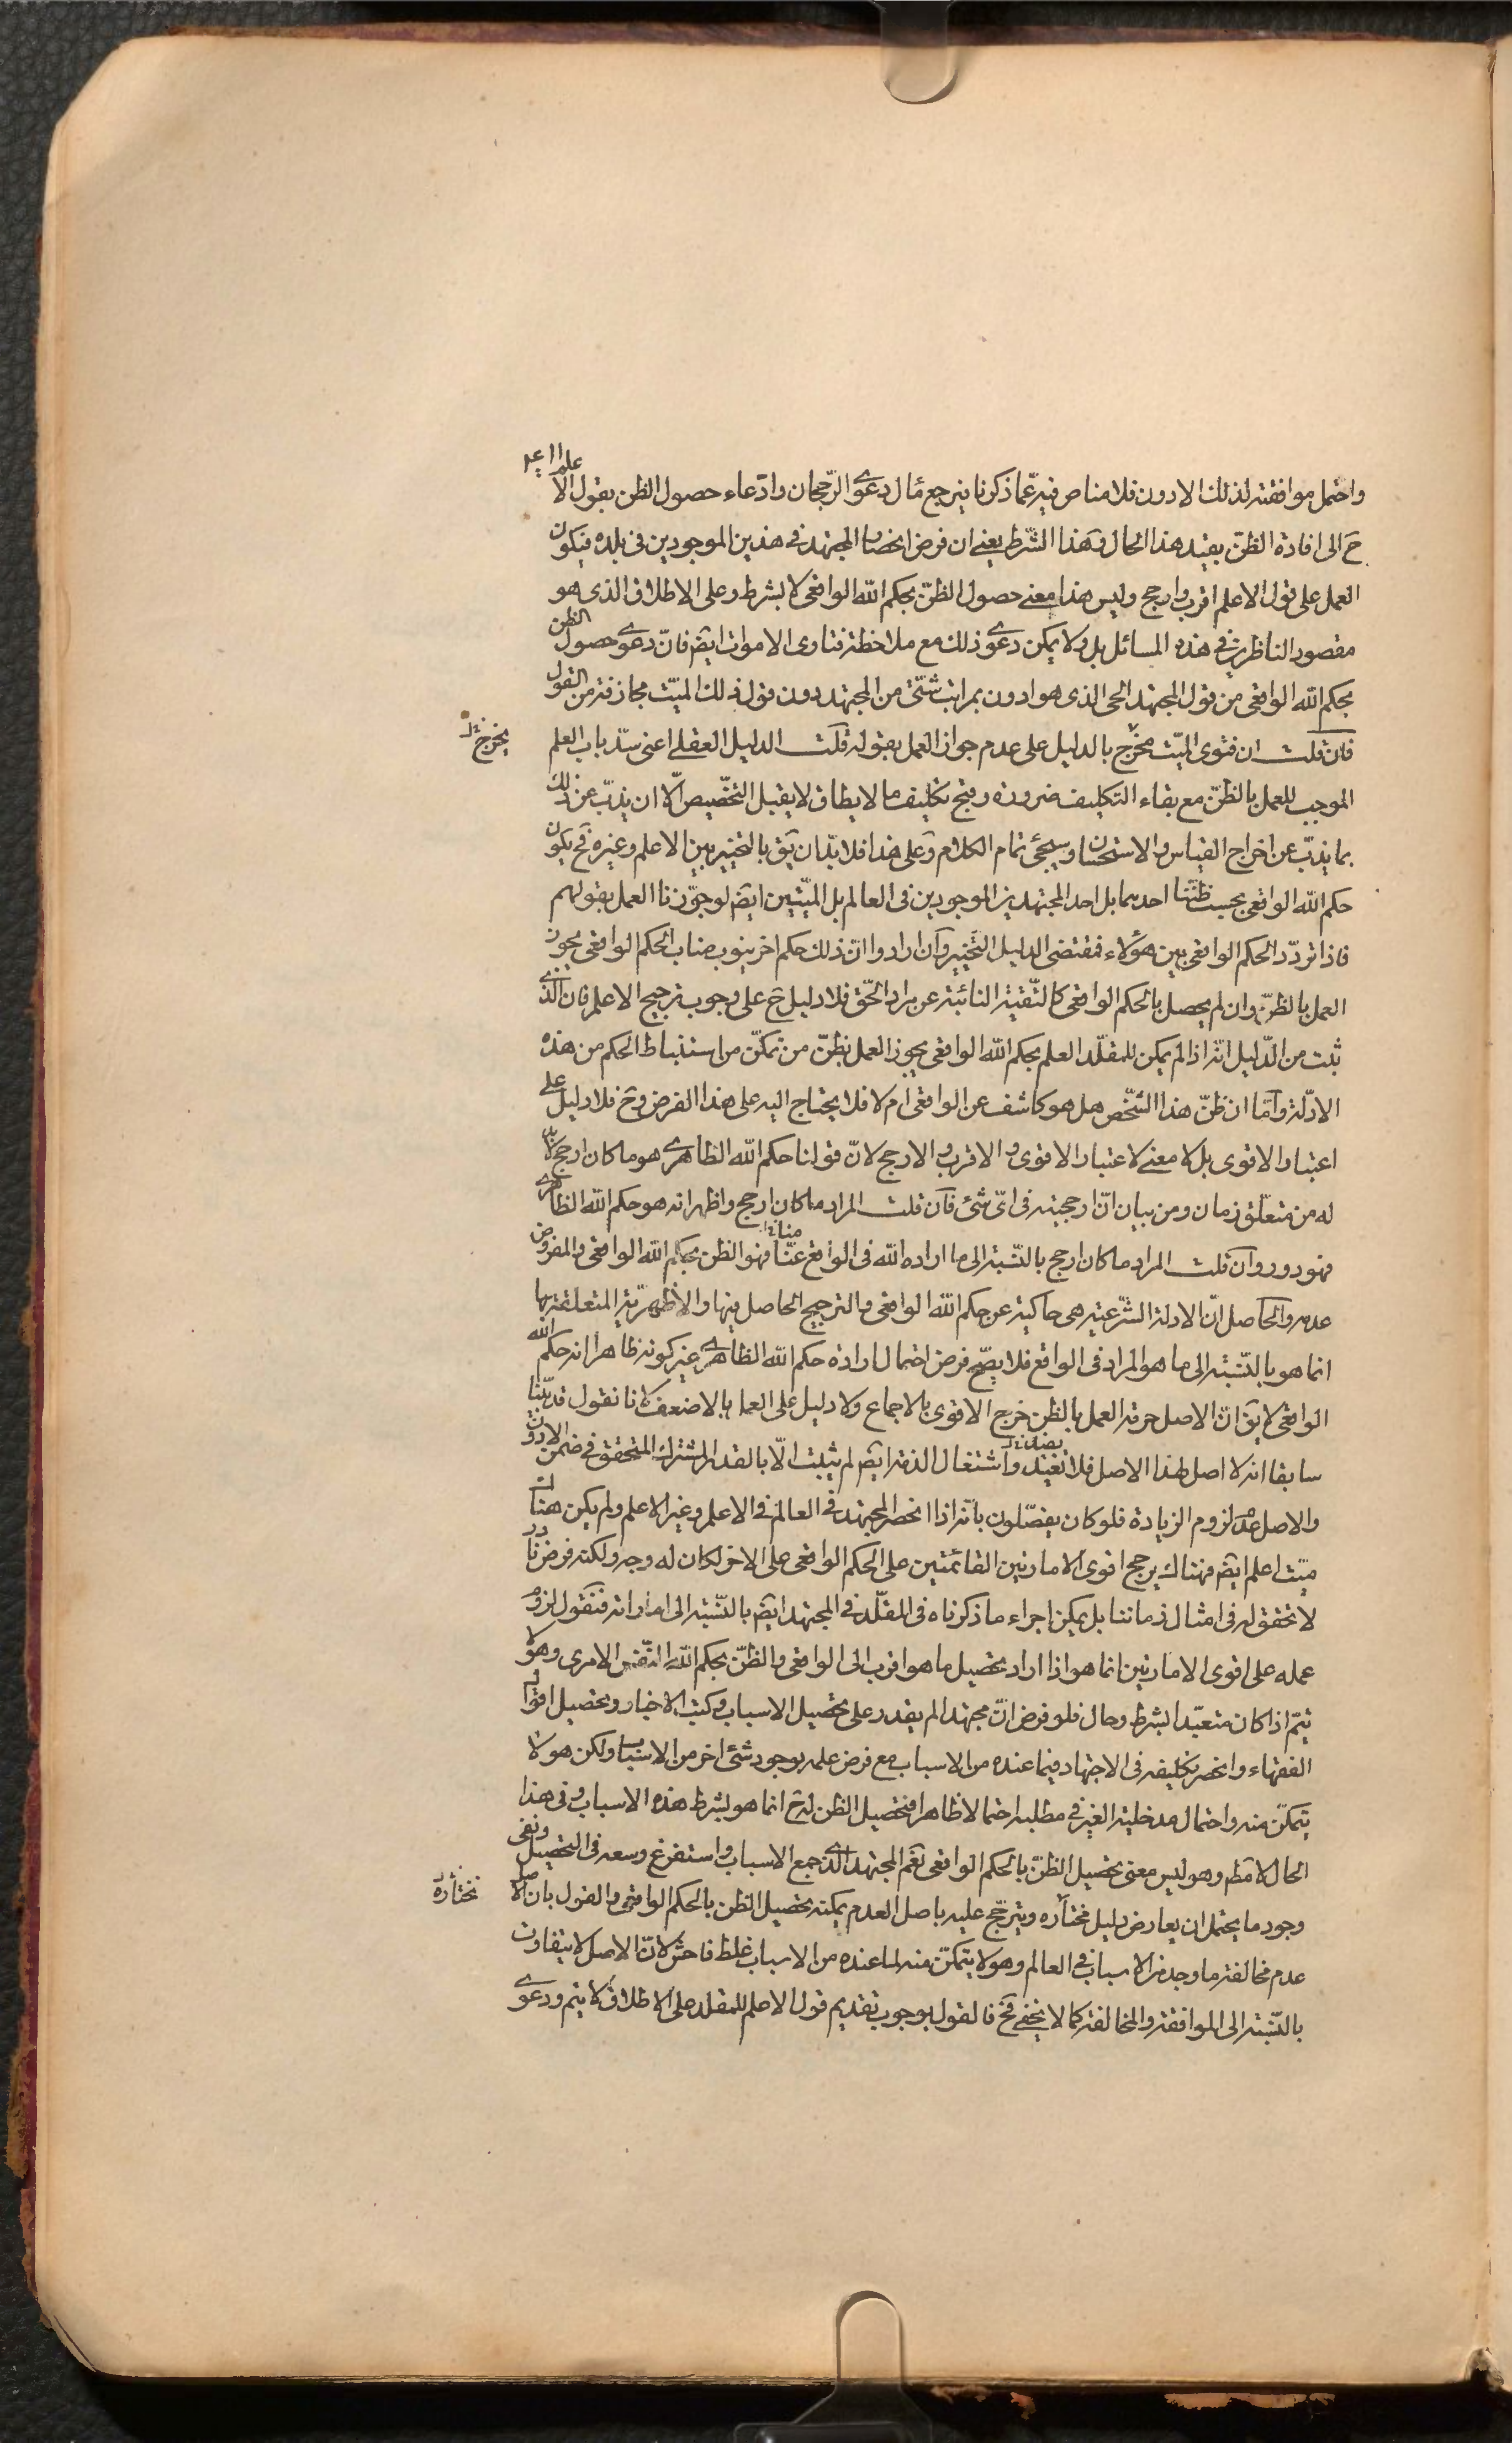 واحتمل موافقته لذلك الادون فلا مناص فيه عما ذكرنا فيرجع مآل دعوى الرجحان وادّعاء حصول الظن بقول الاعلم
ح الى افادة الظنّ بقيد هذا الحال وهذا الشرط يعنى ان فرض انحصار المجتهد فى هذين الموجودين فى بلده فيكون
العمل على قول الاعلم اقرب وارجح وليس هذا معنى حصول الظنّ بحكم الله الواقعى لا بشرط وعلى الاطلاق الذى هو
مقصود الناظرين فى هذه المسائل بل ولا يمكن دعوى ذلك مع ملاحظة فتاوى الاموات ايضا فانّ دعوى حصول الظن
بحكم الله الواقعى من قول المجتهد الحى الذى هو ادون بمراتب شتّى من المجتهد دون قول ذلك الميّت مجازفة من القول
فان قلت ان فتوى الميّت مخرج بالدليل على عدم جواز العمل بقوله قلت الدليل العقلى اعنى سدّ باب العلم
الموجب للعمل بالظنّ مع بقاء التكليف ضرورة وقبح تكليف ما لا يطاق لا يقبل التخصيص الّا ان يذبّ عن ذلك
بما يذبّ عن اخراج القياس والاستحسان وسيجئ تمام الكلام وعلى هذا فلا بدّ ان يق بالتخيير بين الاعلم وغيره فح يكون
حكم الله الواقعى بحسب ظنّنا احدهما بل احد المجتهدين الموجودين فى العالم بل الميّتين ايضا لو جوّزنا العمل بقولهم
فاذا تردّد الحكم الواقعى بين هؤلاء فمقتضى الدليل التخيير وان ارادوا انّ ذلك حكم اخر ينوب مناب الحكم الواقعى يجوز
العمل بالظنّ وان لم يحصل بالحكم الواقعى كالتّقية النائبة عن مراد الحقّ فلا دليل ح على وجوب ترجيح الاعلم فان الذى
ثبت من الدّليل انّه اذا لم يمكن للمقلّد العلم بحكم الله الواقعى يجوز العمل بظنّ من تمكّن من استنباط الحكم من هذه
الادلّة وامّا ان ظنّ هذا الشّخص هل هو كاشف عن الواقعى ام لا فلا يحتاج اليه على هذا الفرض وح فلا دليل على
اعتبار الاقوى بل لا معنى لاعتبار الاقوى والاقرب والارجح لانّ قولنا حكم الله الظاهرى هو ما كان ارجح لا بدّ
له من متعلّق زمان ومن بيان انّ ارجحيته فى اىّ شئ فان قلت المراد ما كان ارجح واظهر انه هو حكم الله الظاهرى
فهو دور وان قلت المراد ما كان ارجح بالنّسبة الى ما اراده الله فى الواقع عنّا فهو الظن بحكم الله الواقعى والمفروض
عدمه والحاصل انّ الادلة الشّرعيّة هى حاكية عن حكم الله الواقعى والترجيح الحاصل فيها والاظهريّة المتعلقة بها
انما هو بالنّسبة الى ما هو المراد فى الواقع فلا يصحّ فرض احتمال ارادة حكم الله الظاهرى غير كونه ظاهرا انه حكم الله
الواقعى لا يق انّ الاصل حرمة العمل بالظن خرج الاقوى بالاجماع ولا دليل على العمل بالاضعف لانا نقول قد بيّنا
سابقا انه لا اصل لهذا الاصل فلا نعيد واشتغال الذمّة ايضا لم يثبت الّا بالقدر المشترك المتحقق فى ضمن الادون
والاصل عدم لزوم الزيادة فلو كان يفصّلون بانّه اذا انحصر المجتهد فى العالم فى الاعلم وغير الاعلم ولم يكن هناك
ميّت اعلم ايضا فهناك يرجح اقوى الامارتين القائمتين على الحكم الواقعى على الاخر لكان له وجه ولكنه فرض نادر
لا تحقق له فى امثال زماننا بل يمكن اجراء ما ذكرناه فى المقلّد فى المجتهد ايضا بالنّسبة الى اماراته فنقول لزوم
عمله على اقوى الامارتين انما هو اذا اراد تحصيل ما هو اقرب الى الواقعى والظنّ بحكم الله النّفس الامرى وهو لا
يتمّ اذا كان متعبّدا بشرط وحال فلو فرض انّ مجتهدا لم يقدر على تحصيل الاسباب وكتب الاخبار وتحصيل اقوال
الفقهاء وانحصر تكليفه فى الاجتهاد فيما عنده من الاسباب مع فرض علمه بوجود شئ اخر من الاسباب ولكن هو لا
يتمكّن منه واحتمال مدخلية الغير فى مطلبه احتمالا ظاهرا فتحصيل الظن له ح انما هو بشرط هذه الاسباب وفى هذا
الحال لا مط وهو ليس معنى تحصيل الظنّ بالحكم الواقعى نعم المجتهد الذى جمع الاسباب واستفرغ وسعه فى التحصيل ونفى
وجود ما يحتمل ان يعارض دليل مختاره ويترجّح عليه باصل العدم يمكنه تحصيل الظن بالحكم الواقعى والقول بان الاصل
مختاره
عدم مخالفة ما وجد من الاسباب فى العالم وهو لا يتمكّن منه لما عنده من الاسباب غلط فاحش لانّ الاصل لا يتفاوت
بالنّسبة الى الموافقة والمخالفة كما لا يخفى فح فالقول بوجوب تقديم قول الاعلم للمقلد على الاطلاق لا يتم ودعوى